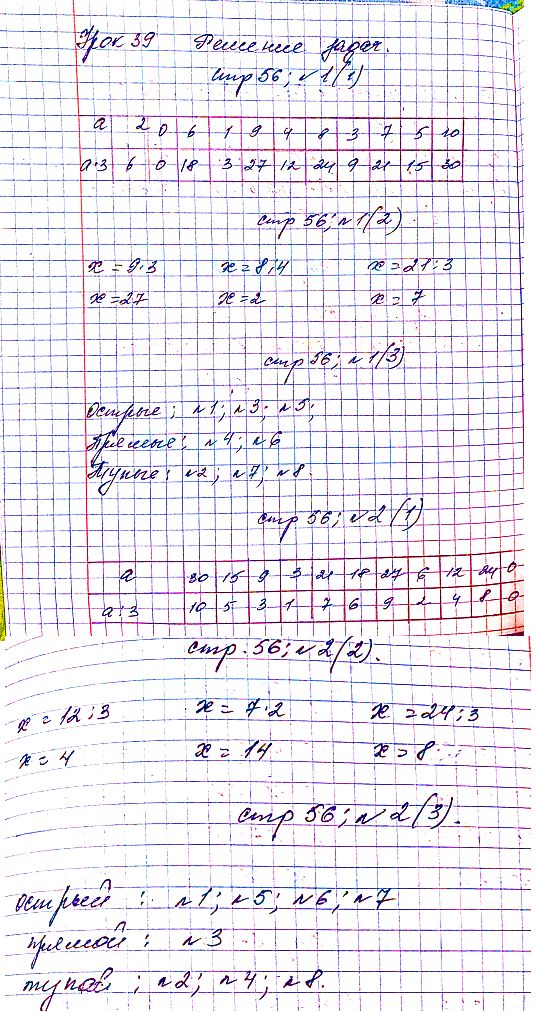 Урок 39 Решение задач.
стр 56; №1(1)
а 2 0 6 1 9 4 8 3 7 5 10
а·3 6 0 18 3 27 12 24 9 21 15 30
стр 56; №1(2)
х = 9·3 х = 8:4 х = 21:3
х = 27 х = 2 х = 7
стр 56; №1(3)
Острые: №1; №3; №5;
Прямые: №4; №6
Тупые: №2; №7; №8.
стр 56; №2(1)
а 30 15 9 3 21 18 27 6 12 24 0
а:3 10 5 3 1 7 6 9 2 4 8 0
стр. 56; №2(2).
х = 12:3 х = 7·2 х = 24:3
х = 4 х = 14 х = 8
стр 56; №2(3).
острый: №1; №5; №6; №7
прямой: №3
тупой: №2; №4; №8.